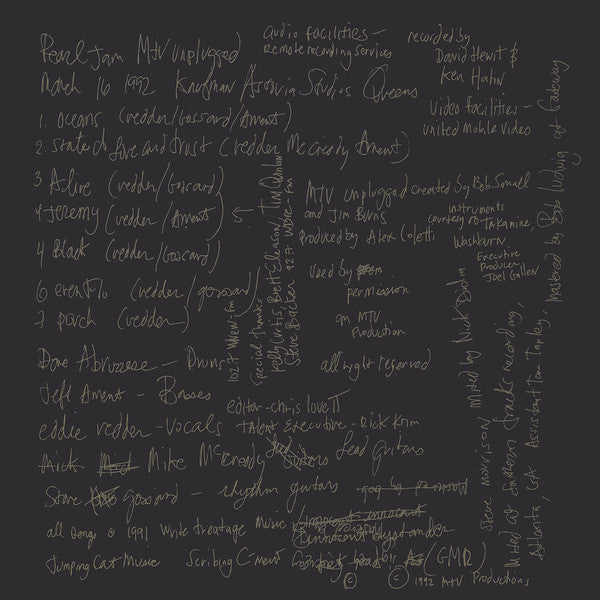 Pearl Jam MTV unplugged
March 16 1992 Kaufman Astoria Studios Queens
1. oceans (vedder/Gossard/Ament)
2. state of love and trust (vedder McCready Ament)
3 Alive (vedder/Gossard)
4 Jeremy (vedder/Ament) 5
4 Black (vedder/Gossard)
6 evenflo (vedder/gossard)
7 porch (vedder)
Dave Abruzzese - Drums
Jeff Ament - Basses
eddie vedder - vocals
Mick Mike McCready lead guitars
Stone gossard - rhythm guitars
all songs © 1991 write treatage Music
Jumping Cat Music Scribing C-ment (GMR)
innocent bystander
audio facilities -
Remote recording services
recorded by
David Hewit &
Ken Hahn
Video facilities -
united Mobile Video
MTV unplugged created by Bob Small
and Jim Burns
Produced by Alex Coletti
instruments
courtesy of Takamine,
Washburn
Executive
Producer
Joel Gallen
Used by
permission
an MTV
Production
all right reserved
editor - chris love II
Talent Executive - Rick Krim
102.7 WNEW-fm
special thanks
Kelly Curtis, Brett Eliason, Tim Quinlan
Steve Backer 92.7 WDRE-fm
Mixed by Nick Didia
Steve Morrison
Mixed at southern tracks recording,
Atlanta, GA Assistant Tom Tapley,
mastered by Bob Ludwig at Gateway
© © 1992 MTV Productions